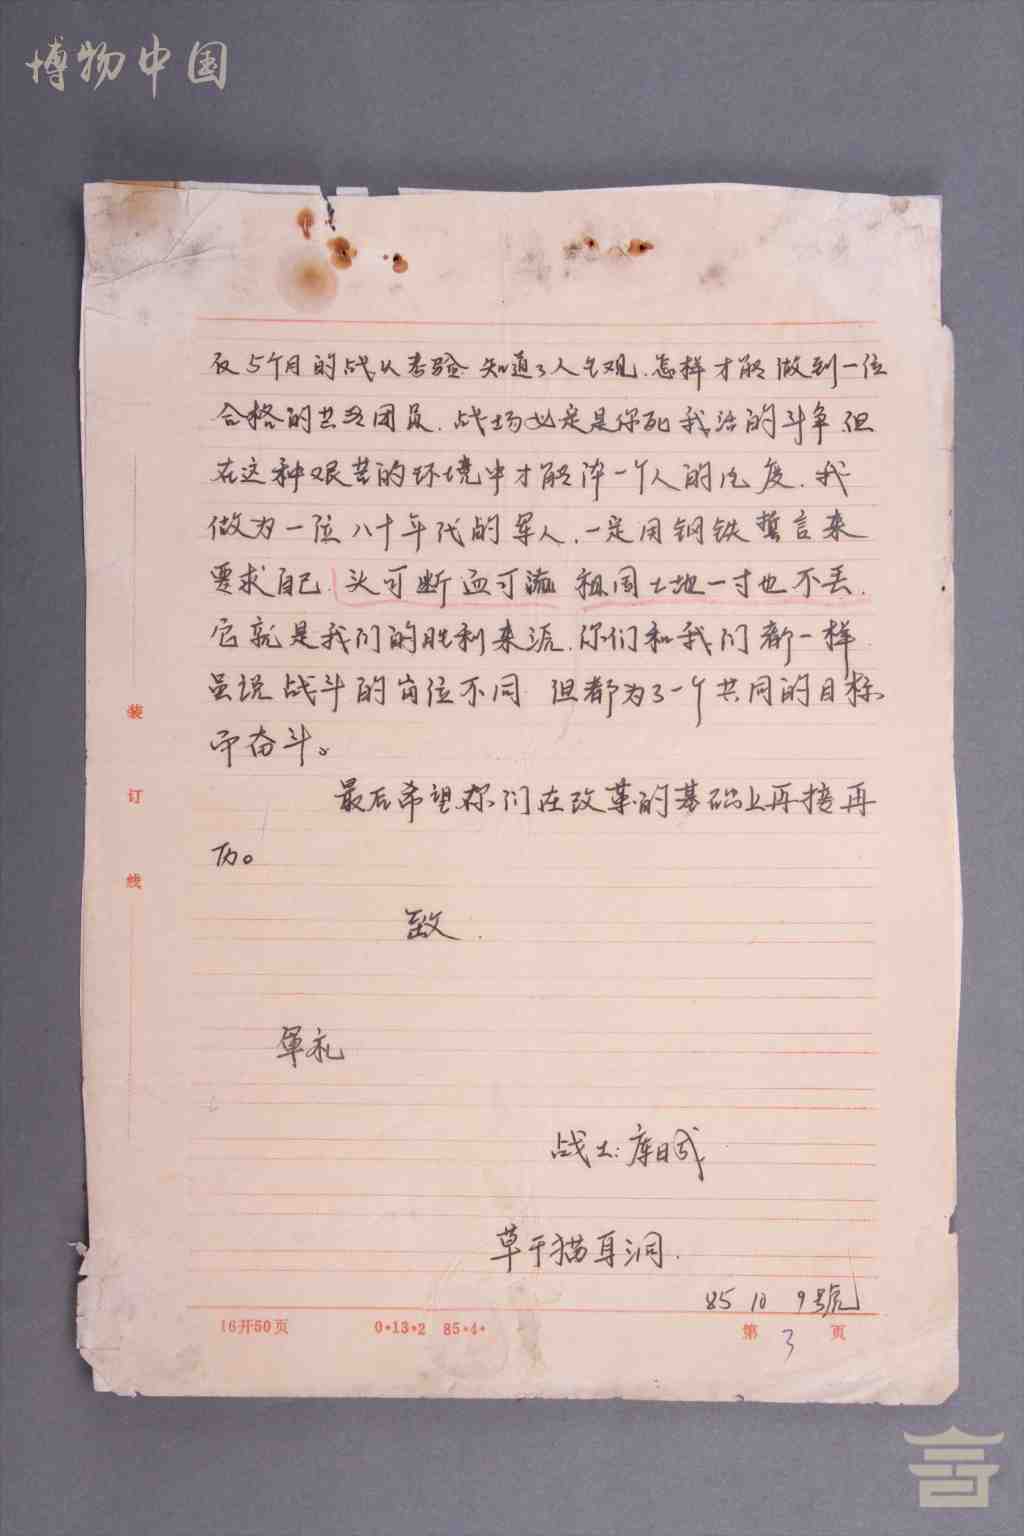 博物中国
5个月的战火考验.知道了人生观.怎样才能做到一位
合格的共产团员.战场必定是你死我活的斗争但
在这种艰苦的环境中才能 一个人的 度.我
做为一位八十年代的军人.一定用钢铁誓言来
要求自己.头可断血可流 祖国土地一寸也不丢.
它就是我们的胜利来源.你们和我们都一样
虽说战斗的岗位不同 但都为了一个共同的目标
而奋斗。
最后希望你们在改革的基础上再接再
历。
致.
军礼
战士:库
草于猫耳洞.
85 10 9號
装
订
线
16开50页 0·13·2 85·4· 第3页